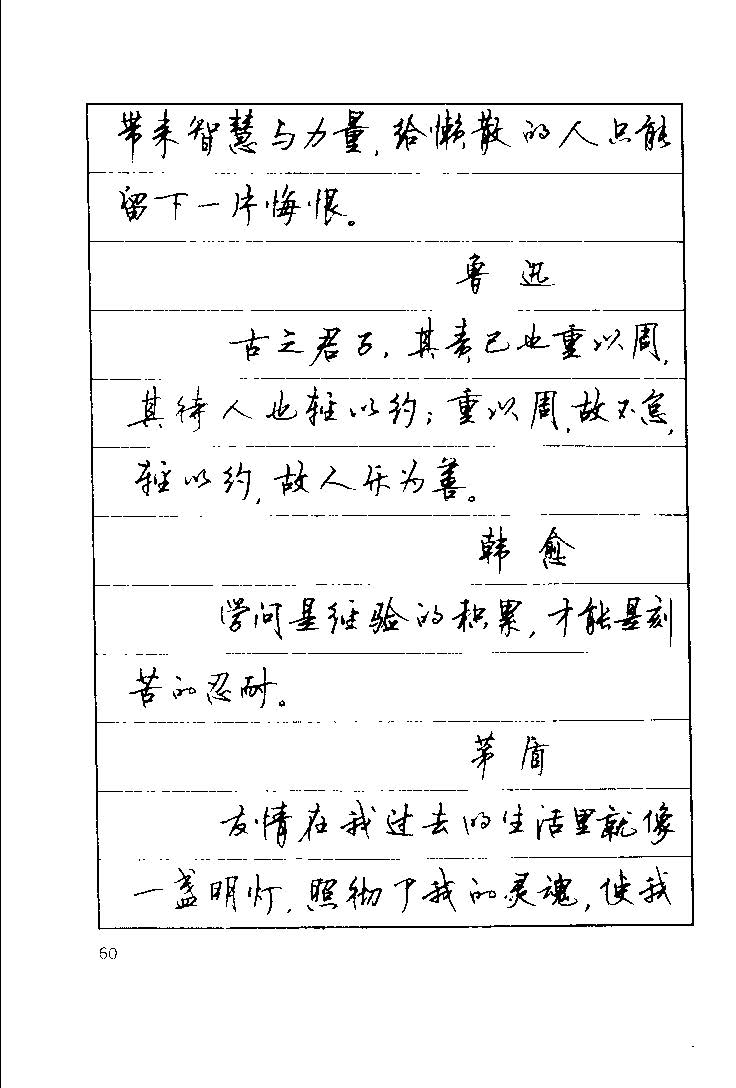 带来智慧与力量,给懒散的人只能
留下一片悔恨。
鲁迅
古之君子,其责己也重以周,
其待人也轻以约;重以周,故不怠,
轻以约,故人乐为善。
韩愈
学问是经验的积累,才能是刻
苦的忍耐。
茅盾
友情在我过去的生活里就像
一盏明灯,照彻了我的灵魂,使我
60